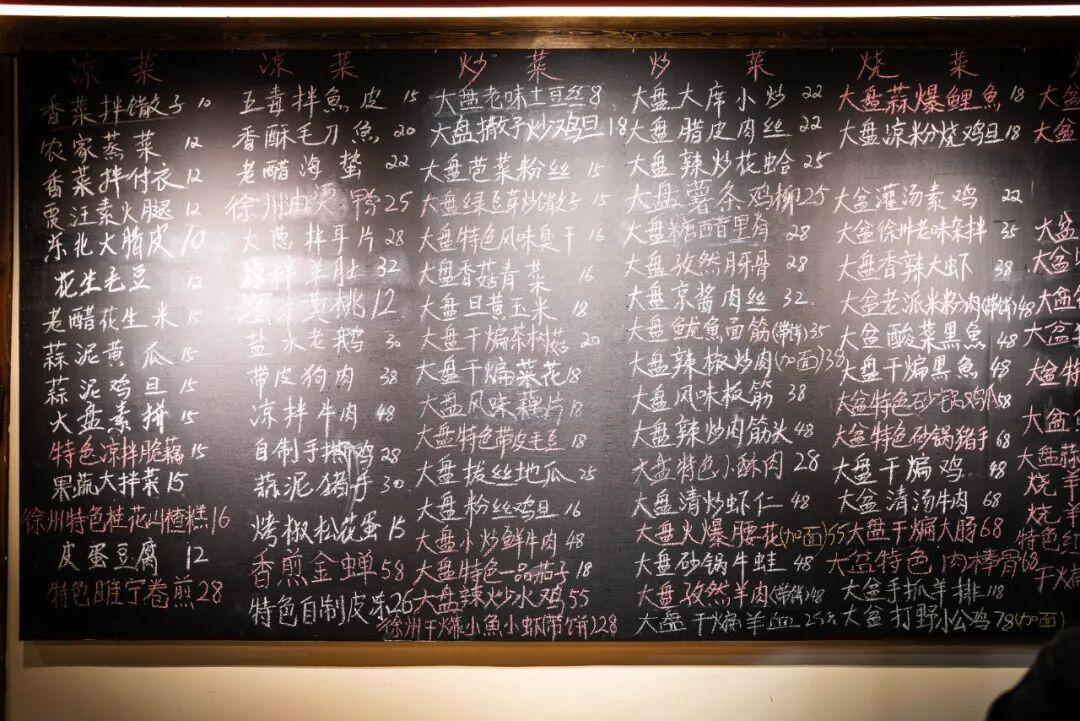 凉菜
香菜拌馓子 10
农家蒸菜 12
香菜拌付衣 12
粟汪素火腿 12
东北大腊皮 10
花生毛豆 12
老醋花生米 15
蒜泥黄瓜 15
蒜泥鸡旦 15
大盘素拼 15
特色凉拌脆藕 15
果蔬大拌菜 15
徐州特色桂花山楂糕 16
皮蛋豆腐 12
特色睢宁卷煎 28
凉菜
五毒拌魚皮 15
香酥毛刀魚 20
老醋海蜇 22
徐州油烫鸭 25
大葱拌耳片 28
凉拌羊肚 32
黄桃 12
盐水老鹅 30
带皮狗肉 38
凉拌牛肉 48
自制手撕鸡 28
蒜泥猪手 30
烤椒松花蛋 15
香煎金蝉 58
特色自制皮冻 26
炒菜
大盘老味土豆丝 8
大盘撒子炒鸡旦 18
大盘芭菜粉丝 15
大盘绿豆芽炒馓子 15
大盘特色风味臭干 16
大盘香菇青菜 16
大盘旦黄玉米 18
大盘干煸茶树菇 20
大盘干煸菜花 18
大盘风味藕片 18
大盘特色带皮毛豆 18
大盘拔丝地瓜 25
大盘粉丝鸡旦 16
大盘小炒鲜牛肉 48
大盘特色一品茄子 18
大盘辣炒水鸡 55
徐州干爆小魚小虾(带饼) 28
炒菜
大盘大席小炒 22
大盘腊皮肉丝 22
大盘辣炒花蛤 25
大盘薯条鸡柳 25
大盘糖醋里脊 28
大盘孜然月牙骨 28
大盘京酱肉丝 32
大盘鱿魚面筋(带饼) 35
大盘辣椒炒肉(加面) 38
大盘风味板筋 38
大盘辣炒肉筋头 48
大盘特色小酥肉 28
大盘清炒虾仁 48
大盘火爆腰花(加面) 55
大盘砂锅牛蛙 48
大盘孜然羊肉(带饼) 48
大盘干煸羊血 25
烧菜
大盘蒜爆鲤魚 18
大盘凉粉烧鸡旦 18
大盆灌汤素鸡 22
大盆徐州老味杂拌 35
大盘香辣大虾 38
大盆老派米粉肉(带饼) 48
大盆酸菜黑魚 48
大盘干煸黑魚 48
大盆特色砂锅鸡爪 58
大盆特色砂锅猪手 68
大盘干煸鸡 48
大盆清汤牛肉 68
大盘干煸大肠 68
大盆特色肉棒骨 68
大盆手抓羊排 118
大盆打野小公鸡 78(加面)
大盆
大盆
大盆
大盆
大盆
大盆
大盘蒜
烧羊
烧羊
特色红
干煸